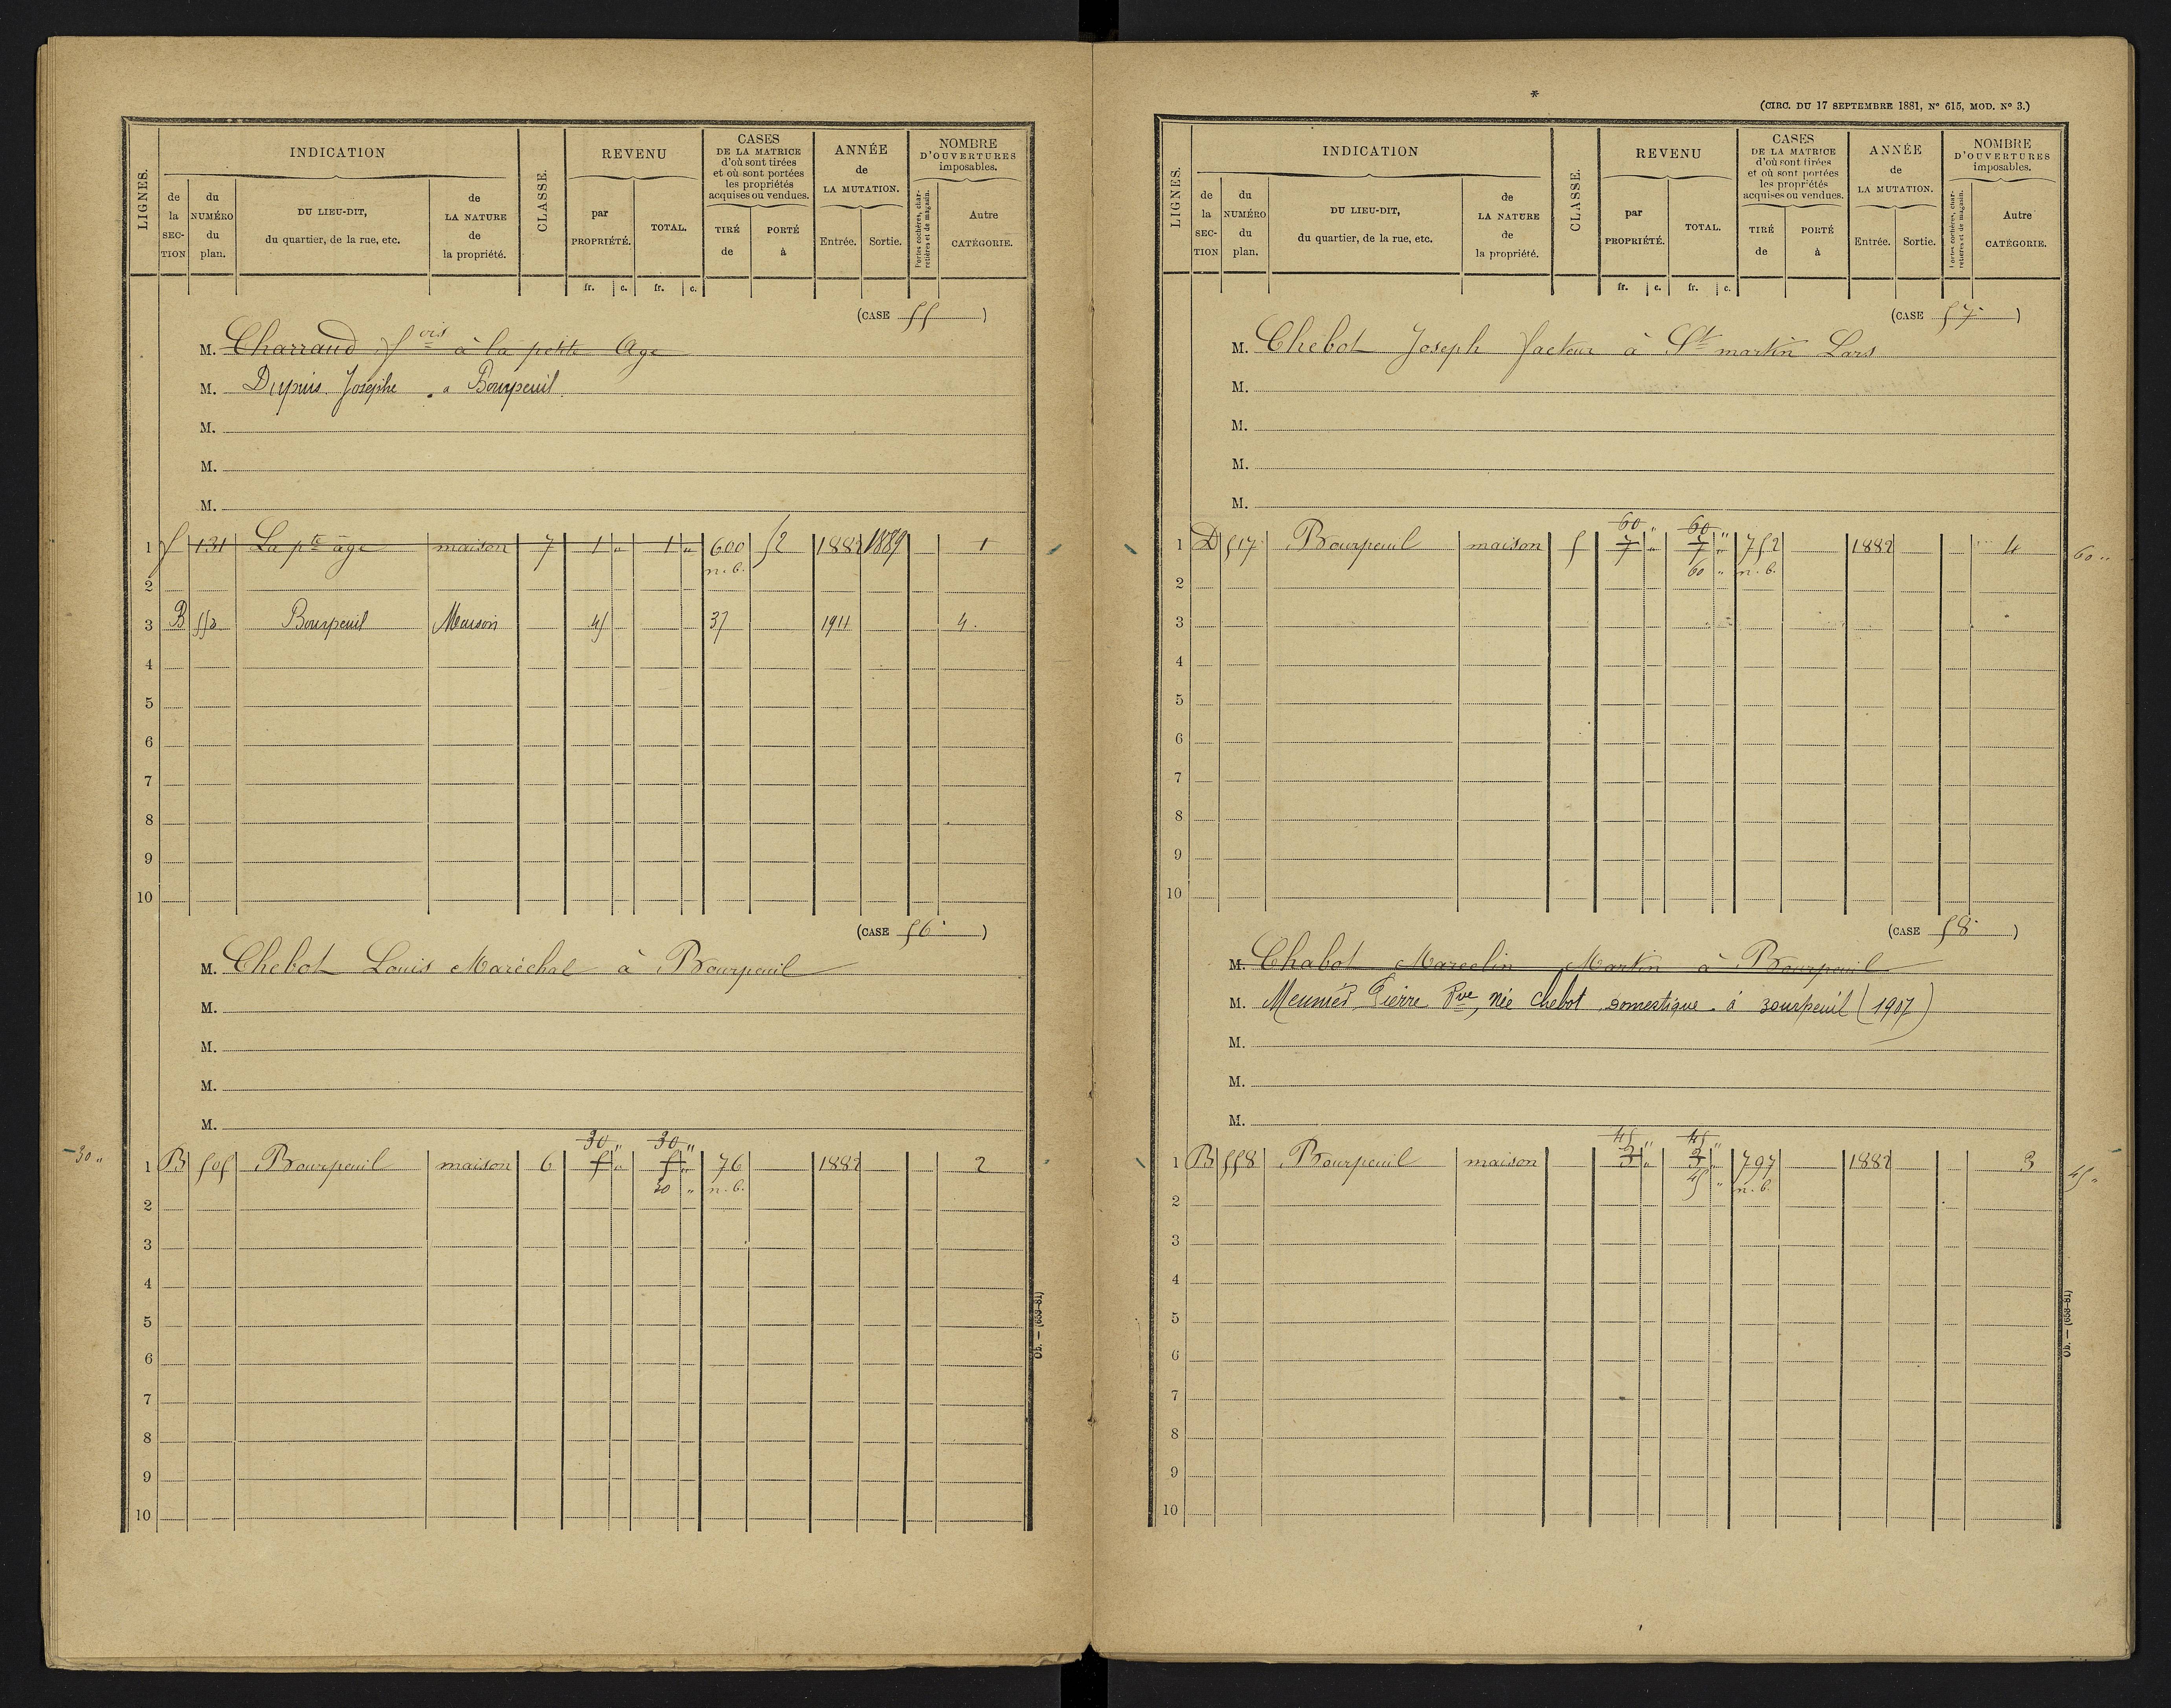 LIGNES.
INDICATION
CLASSE.
REVENU
CASES
DE LA MATRICE
d'où sont tirées
et où sont portées
les propriétés
acquises ou vendues.
ANNÉE
de
LA MUTATION.
NOMBRE
D'OUVERTURES
imposables.
de la SECTION
du NUMÉRO du plan.
DU LIEU-DIT,
du quartier, de la rue, etc.
de LA NATURE de la propriété.
par PROPRIÉTÉ.
TOTAL.
TIRÉ de
PORTÉ à
Entrée.
Sortie.
Portes cochères, charretières et de magasin.
Autre CATÉGORIE.
fr. c. fr. c.
(CASE 55)
M. Charraud fcois à la petite Age
M. Dupuis Josephe a Bourpeuil
M.
M.
M.
1 f 131 La pte âge maison 7 1 " 1 " 600 52 1882 1889 1
n. b.
2
3 B 552 Bourpeuil Maison 45 37 1911 4.
4
5
6
7
8
9
10
(CASE 56)
M. Chebot Louis Maréchal à Bourpeuil
M.
M.
M.
M.
30 " 30 "
30 " 1 B 505 Bourpeuil maison 6 5 " 5 " 76 1882 2
30 " n. b.
2
3
4
5
6
7
8
9
10
Ob. — (658-81)
*
(CIRC. DU 17 SEPTEMBRE 1881, N° 615, MOD. N° 3.)
LIGNES.
INDICATION
CLASSE.
REVENU
CASES
DE LA MATRICE
d'où sont tirées
et où sont portées
les propriétés
acquises ou vendues.
ANNÉE
de
LA MUTATION.
NOMBRE
D'OUVERTURES
imposables.
de la SECTION
du NUMÉRO du plan.
DU LIEU-DIT,
du quartier, de la rue, etc.
de LA NATURE de la propriété.
par PROPRIÉTÉ.
TOTAL.
TIRÉ de
PORTÉ à
Entrée.
Sortie.
Portes cochères, charretières et de magasin.
Autre CATÉGORIE.
fr. c. fr. c.
(CASE 57)
M. Chebot Joseph facteur à St martin Lars
M.
M.
M.
M.
60 " 60 "
1 D 517 Bourpeuil maison 5 7 " 7 " 752 1882 4 60 "
60 " n. b.
2
3
4
5
6
7
8
9
10
(CASE 58)
M. Chabot Marcelin Martin à Bourpeuil
M. Meunier Pierre Vve, née Chebot domestique à Bourpeuil (1907)
M.
M.
M.
45 " 45 "
1 B 558 Bourpeuil maison 3 " 3 " 797 1882 3 45 "
45 " n. b.
2
3
4
5
6
7
8
9
10
Ob. — (658-81)